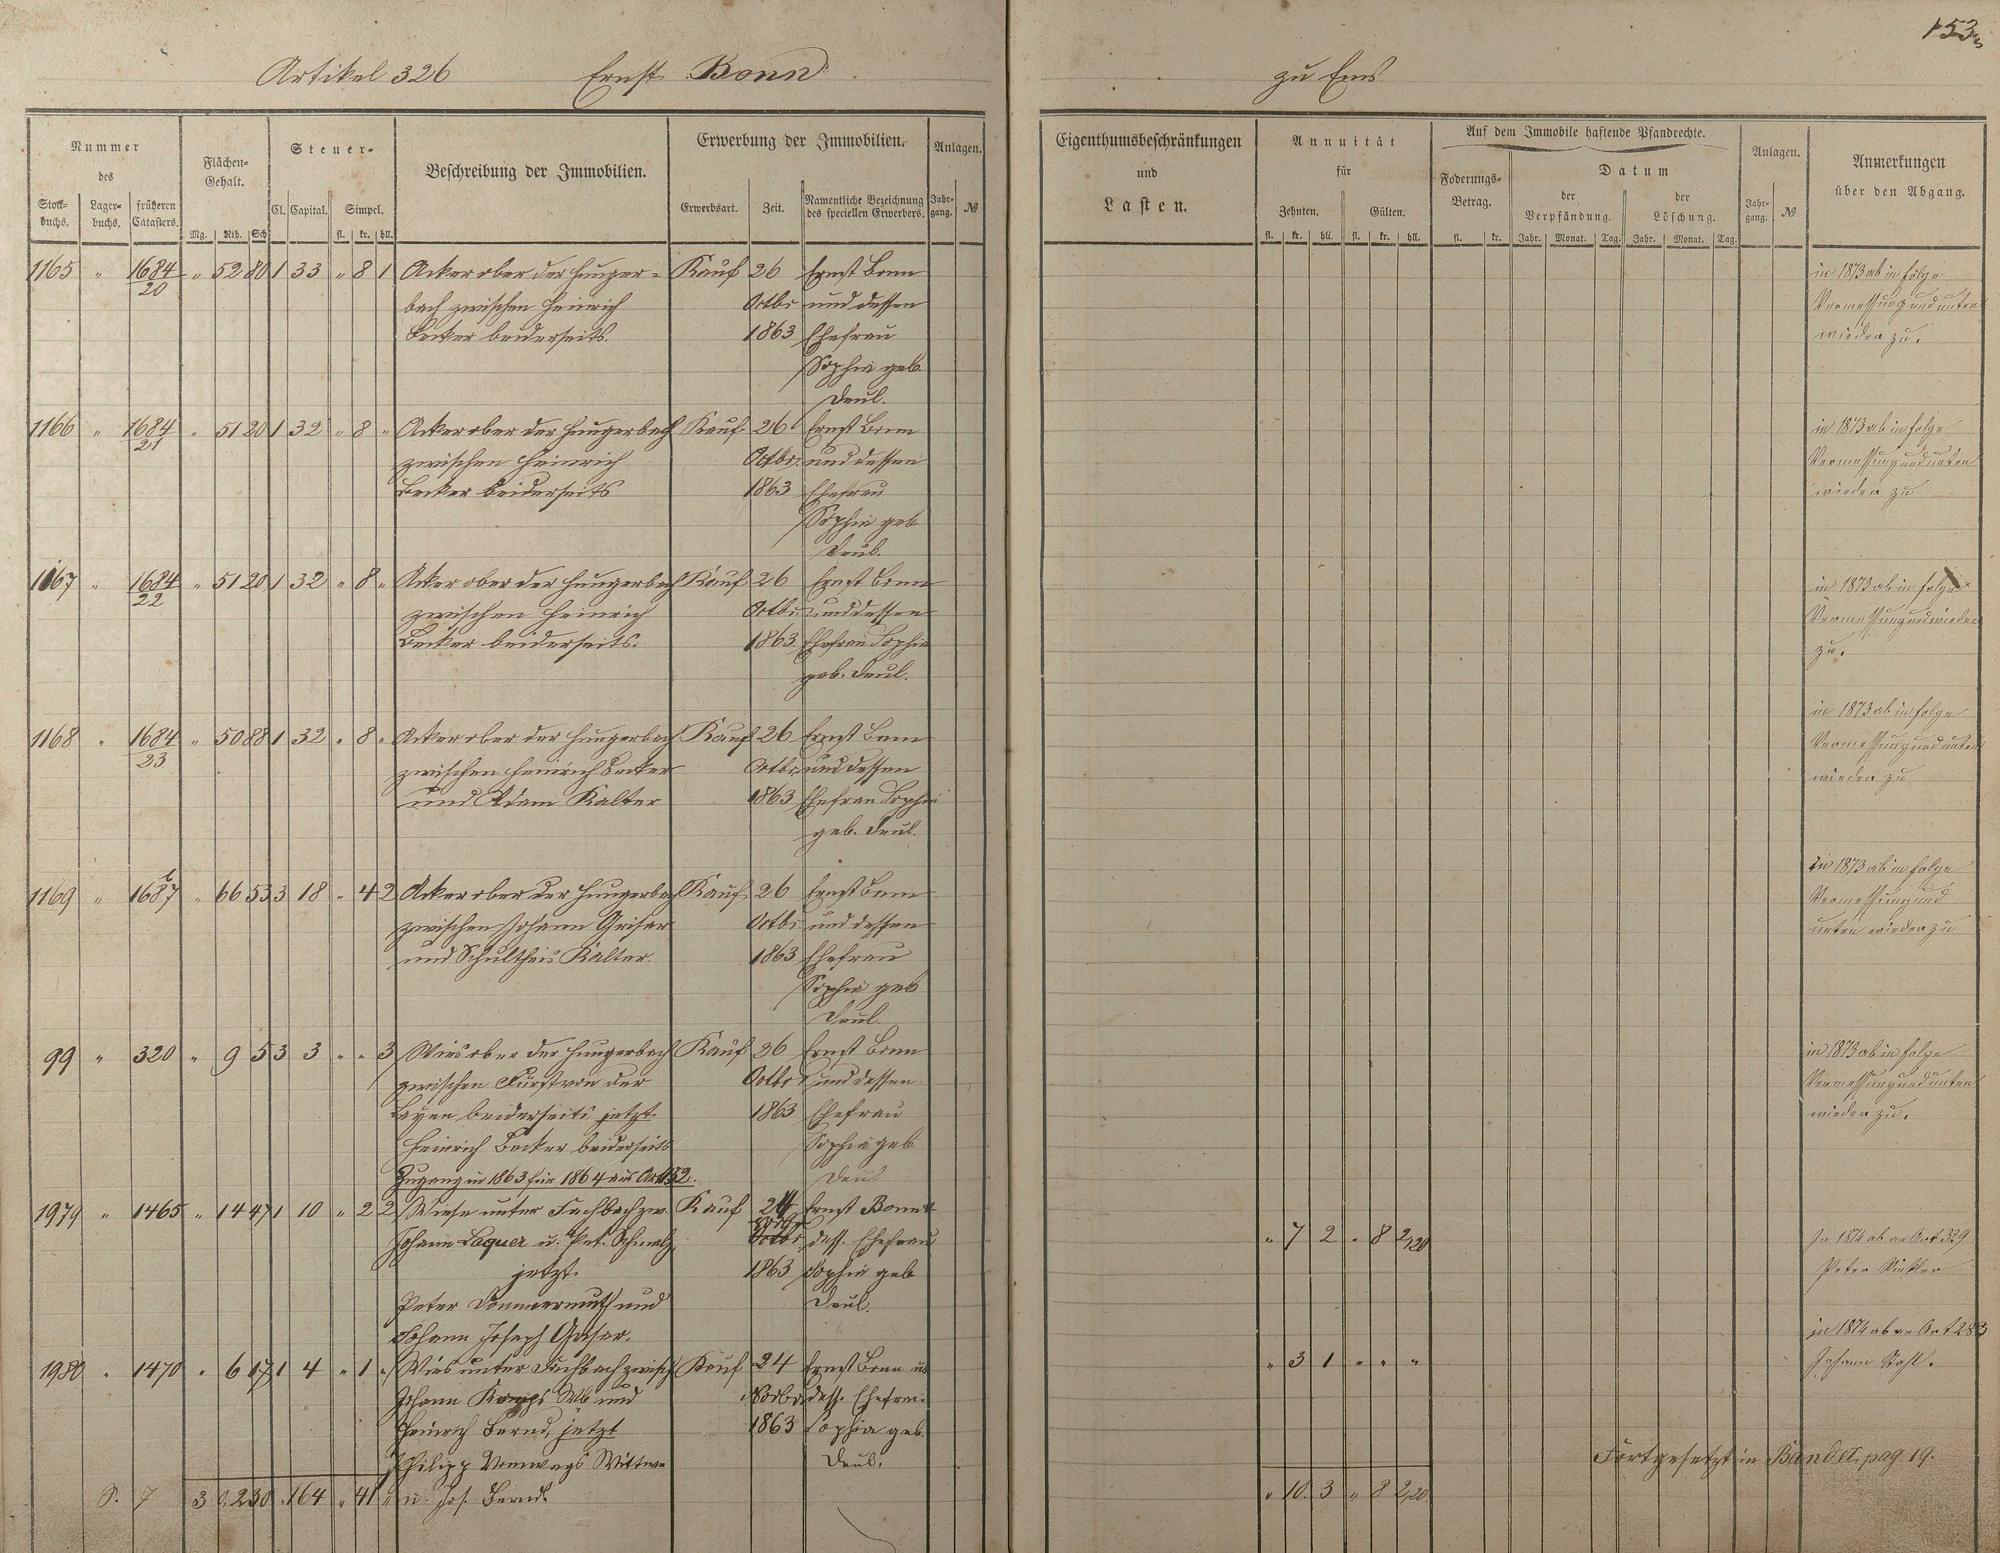 153
Artikel 326 Ernst Bonn zu Ems
Nummer des
Stock-buchs. Lager-buchs. früheren Catasters.
Flächen-Gehalt.
Mg. Rth. Sch
Steuer-
Cl. Capital. Simpel.
fl. kr. hll.
Beschreibung der Immobilien.
Erwerbung der Immobilien.
Erwerbsart. Zeit. Namentliche Bezeichnung des speciellen Erwerbers.
Anlagen.
Jahr-gang. №
Eigenthumsbeschränkungen
und
Lasten.
Annuität
für
Zehnten. Gülten.
fl. kr. hll. fl. kr. hll.
Auf dem Immobile haftende Pfandrechte.
Foderungs-Betrag.
fl. kr.
Datum
der Verpfändung. der Löschung.
Jahr. Monat. Tag. Jahr. Monat. Tag.
Anlagen.
Jahr-gang. №
Anmerkungen
über den Abgang.
1165 " 1684/20 " 52 80 1 33 " 8 1 Acker ober der Hunger- Kauf 26 Ernst Bonn in 1873 ab in folge
bach zwischen Heinrich Octbr und dessen Vermessung und unten
Becker beiderseits. 1863 Ehefrau wieder zu.
Sophie geb.
Deul.
1166 " 1684/21 " 51 20 1 32 " 8 " Acker ober der Hungerbach Kauf 26 Ernst Bonn in 1873 ab in folge
zwischen Heinrich Octbr. und dessen Vermessung und unten
Becker beiderseits 1863 Ehefrau wieder zu
Sophie geb
Deul.
1167 " 1684/22 " 51 20 1 32 " 8 " Acker ober der Hungerbach Kauf 26 Ernst Bonn in 1873 ab in folge
zwischen Heinrich Octbr und dessen Vermessung und wieder
Becker beiderseits. 1863 Ehefrau Sophie zu.
geb. Deul.
1168 " 1684/23 " 50 88 1 32 " 8 " Acker ober der Hungerbach Kauf 26 Ernst Bonn in 1873 ab in folge
zwischen Heinrich Becker Octbr und dessen Vermessung und unten
und Adam Kalter 1863 Ehefrau Sophie wieder zu
geb. Deul.
1169 " 1687 " 66 53 3 18 " 4 2 Acker ober der Hungerbach Kauf 26 Ernst Bonn in 1873 ab in folge
zwischen Johann Grisar Octbr. und dessen Vermessung und
und Schultheis Kalter. 1863 Ehefrau unten wieder zu
Sophie geb
Deul.
99 " 320 " 9 5 3 3 " " 3 Wies ober der Hungerbach Kauf 26 Ernst Bonn in 1873 ab in folge
zwischen Fürst von der Octbr und dessen Vermessung und unten
Leyen beiderseits jetzt 1863 Ehefrau wieder zu.
Heinrich Becker beiderseits Sophie geb
Zugang in 1863 für 1864 aus Art 152. Deul
1979 " 1465 " 14 47 1 10 " 2 2 Wiese unter Fachbach zw. Kauf 24 Ernst Bonn u " 7 2 " 8 2,20
Johann Laquer u. Pet. Schmalz, Octbr. dess. Ehefrau In 1874 ab an Art 329
jetzt. 1863 Sophie geb Peter
Peter Dommermuth und Deul.
Johann Joseph Gaser. in 1874 ab an Art 283
1980 " 1470 " 6 17 1 4 " 1 " Wies unter Fachbach zwisch Kauf 24 Ernst Bonn u " 3 1 " " " Johann Stahl.
Johann Kamps Wb und Novbr. dess. Ehefrau
Heinrich Bernd, jetzt 1863 Sophia geb.
Philipp Wittwe Deul.
u. Jos. Bernd. Fortgesetzt in Band II. pag 19.
S. 7 3 0.2 30 . 164 " 41 " " 10. 3 " 8 2,20.